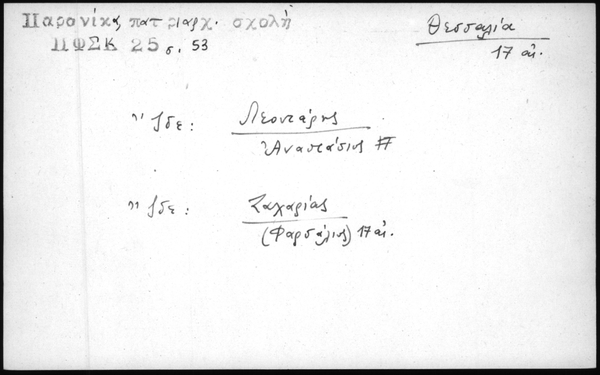 Παρανίκα, πατριαρχ. σχολή
ΠΦΣΚ 25 σ. 53
Θεσσαλία
17 αἰ.
Ἴδε: Λεοντάρης
Ἀναστάσιος #
Ἴδε: Ζαχαρίας
(Φαρσάλιος) 17 αἰ.